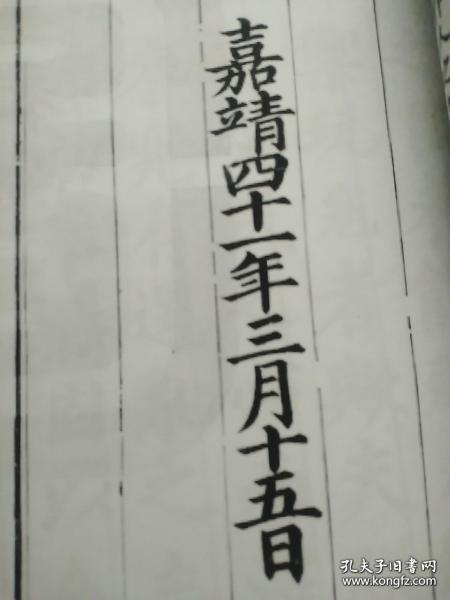 嘉靖四十一年三月十五日
孔夫子旧书网
www.kongfz.com